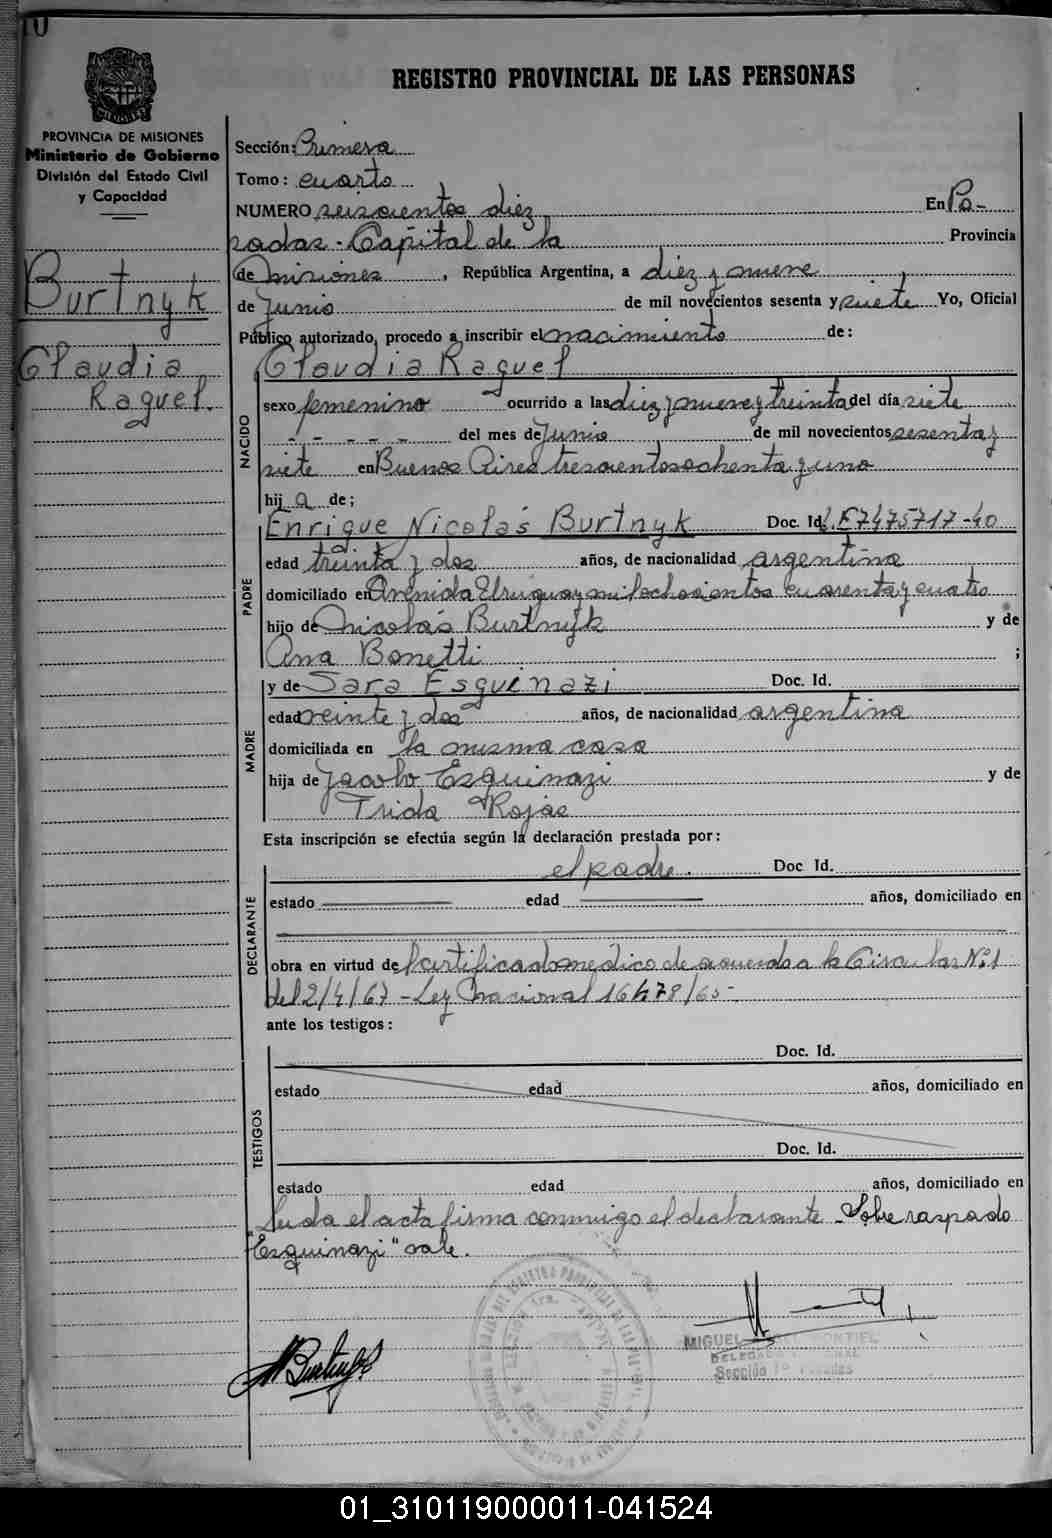 10
REGISTRO PROVINCIAL DE LAS PERSONAS
PROVINCIA DE MISIONES
Ministerio de Gobierno
División del Estado Civil
y Capacidad
Burtnyk
Claudia
Raquel.
Sección: Primera
Tomo: cuarto
NUMERO seiscientos diez En Po-
sadas - Capital de la Provincia
de Misiones, República Argentina, a diez y nueve
de Junio de mil novecientos sesenta y siete Yo, Oficial
Público autorizado, procedo a inscribir el nacimiento de:
NACIDO
Claudia Raquel
sexo femenino ocurrido a las diez y nueve y treinta del día siete
- - - - - del mes de Junio de mil novecientos sesenta y
siete en Buenos Aires trescientos ochenta y uno
hij a de;
PADRE
Enrique Nicolás Burtnyk Doc. Id. L.E 7475717-40
edad treinta y dos años, de nacionalidad argentina
domiciliado en Avenida Uruguay mil ochocientos cuarenta y cuatro
hijo de Nicolás Burtnyk y de
Ana Bonetti ;
MADRE
y de Sara Esquinazi Doc. Id.
edad veinte y dos años, de nacionalidad argentina
domiciliada en la misma casa
hija de Jacobo Esquinazi y de
Rojas
Esta inscripción se efectúa según la declaración prestada por:
DECLARANTE
el padre. Doc. Id.
estado edad años, domiciliado en
obra en virtud de certificado médico de acuerdo a la Circular Nº1
del 2/4/67 - Ley Nacional 16478/65-
ante los testigos:
TESTIGOS
Doc. Id.
estado edad años, domiciliado en
Doc. Id.
estado edad años, domiciliado en
Leída el acta firma conmigo el declarante - Sobre raspado
"Esquinazi" vale.
MIGUEL MONTIEL
Sección 1ª
01_310119000011-041524